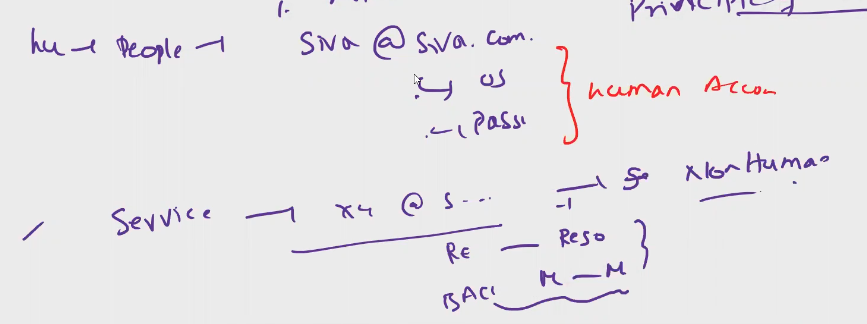 Principle
hu People Siva @ Siva.com.
us
Pass
human Accou
Service xy @ s... Human
RE Reso
BACI M - M